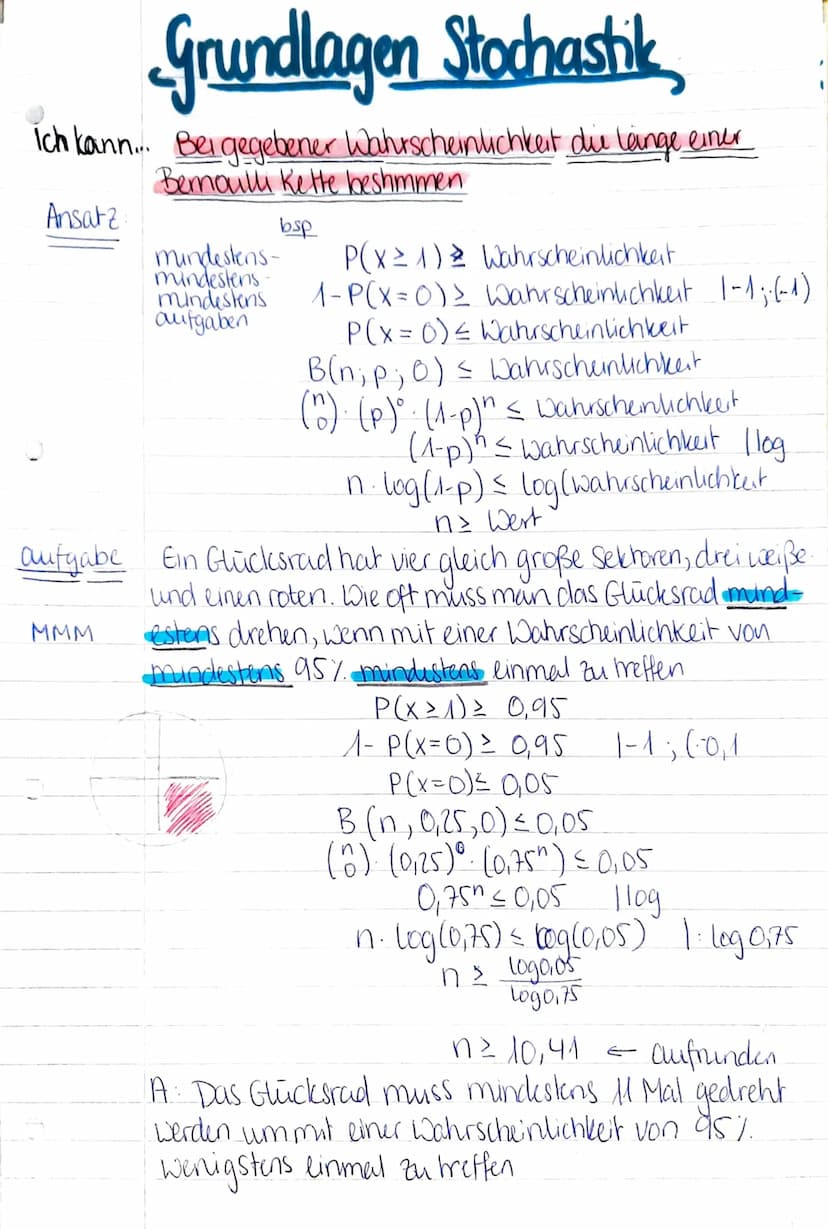 Grundlagen Stochastik
Ich kann... Bei gegebener Wahrscheinlichkeit die länge einer
Bernoulli Kette bestimmen
Ansatz:
bsp
mindestens-
mindestens-
mindestens
aufgaben
P(x ≥ 1) ≥ Wahrscheinlichkeit
1-P(x=0) ≥ Wahrscheinlichkeit |-1; ·(-1)
P(x=0) ≤ Wahrscheinlichkeit
B(n; p; 0) ≤ Wahrscheinlichkeit
(n 0) · (p)⁰ · (1-p)ⁿ ≤ Wahrscheinlichkeit
(1-p)ⁿ ≤ Wahrscheinlichkeit | log
n · log(1-p) ≤ log(wahrscheinlichkeit
n ≥ Wert
aufgabe Ein Glücksrad hat vier gleich große Sektoren, drei weiße
und einen roten. Wie oft muss man das Glücksrad mind-
MMM estens drehen, wenn mit einer Wahrscheinlichkeit von
mindestens 95% mindestens einmal zu treffen
P(x ≥ 1) ≥ 0,95
1- P(x=0) ≥ 0,95 |-1; (·0,1
P(x=0) ≤ 0,05
B(n, 0,25, 0) ≤ 0,05
(n 0) · (0,25)⁰ · (0,75ⁿ) ≤ 0,05
0,75ⁿ ≤ 0,05 | log
n · log(0,75) ≤ log(0,05) | : log 0,75
n ≥ log0,05 / log0,75
n ≥ 10,41 ← aufrunden
A: Das Glücksrad muss mindestens 11 Mal gedreht
werden um mit einer Wahrscheinlichkeit von 95%
wenigstens einmal zu treffen